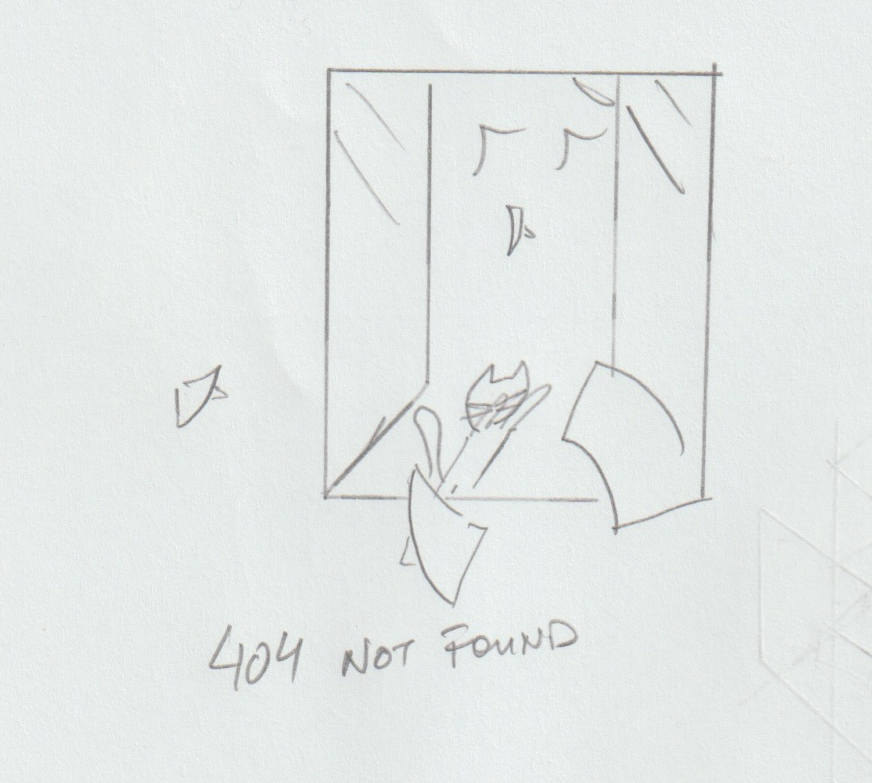 404 NOT FOUND